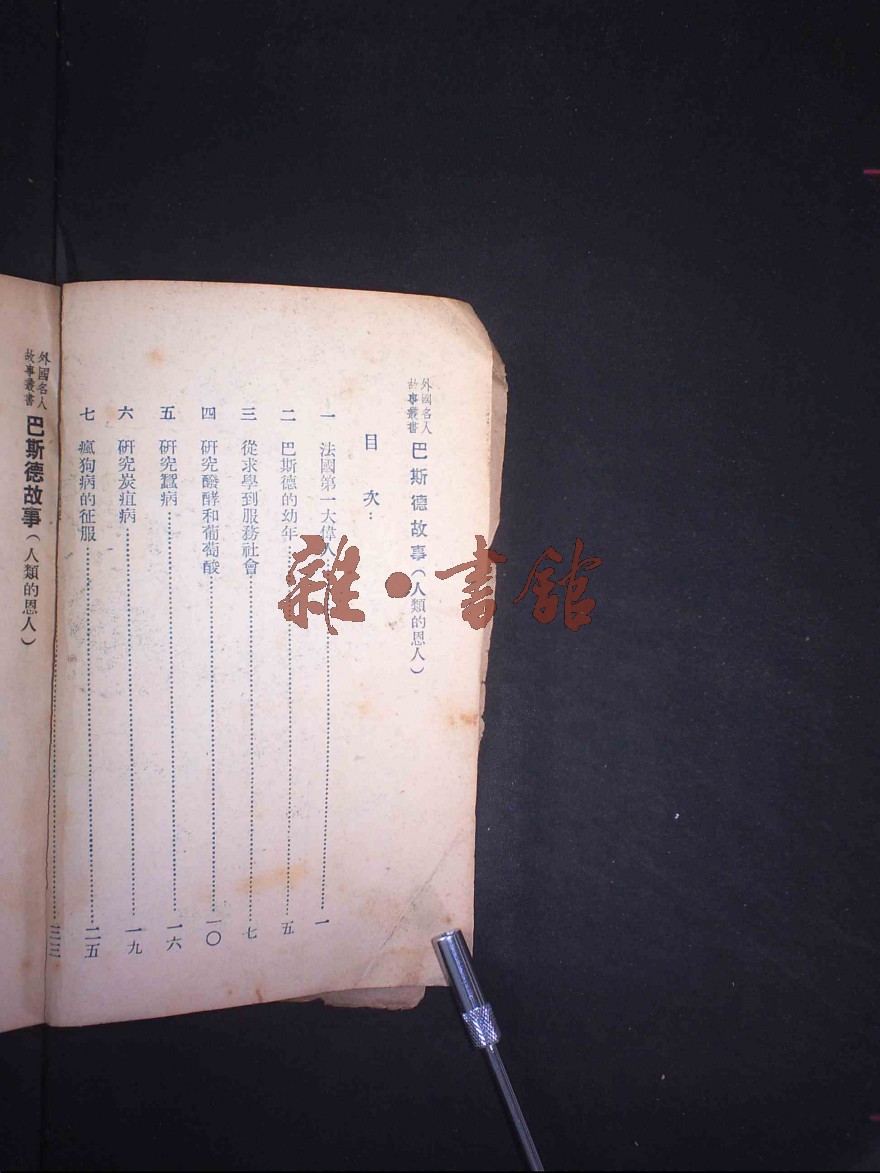 外國名人
故事叢書
巴斯德故事（人類的恩人）
目次：
一 法國第一大偉人⋯⋯一
二 巴斯德的幼年⋯⋯五
三 從求學到服務社會⋯⋯七
四 研究醱酵和葡萄酸⋯⋯一〇
五 研究蠶病⋯⋯一六
六 研究炭疽病⋯⋯一九
七 瘋狗病的征服⋯⋯二五
⋯⋯三三
外國名人
故事叢書
巴斯德故事（人類的恩人）
雜·書館